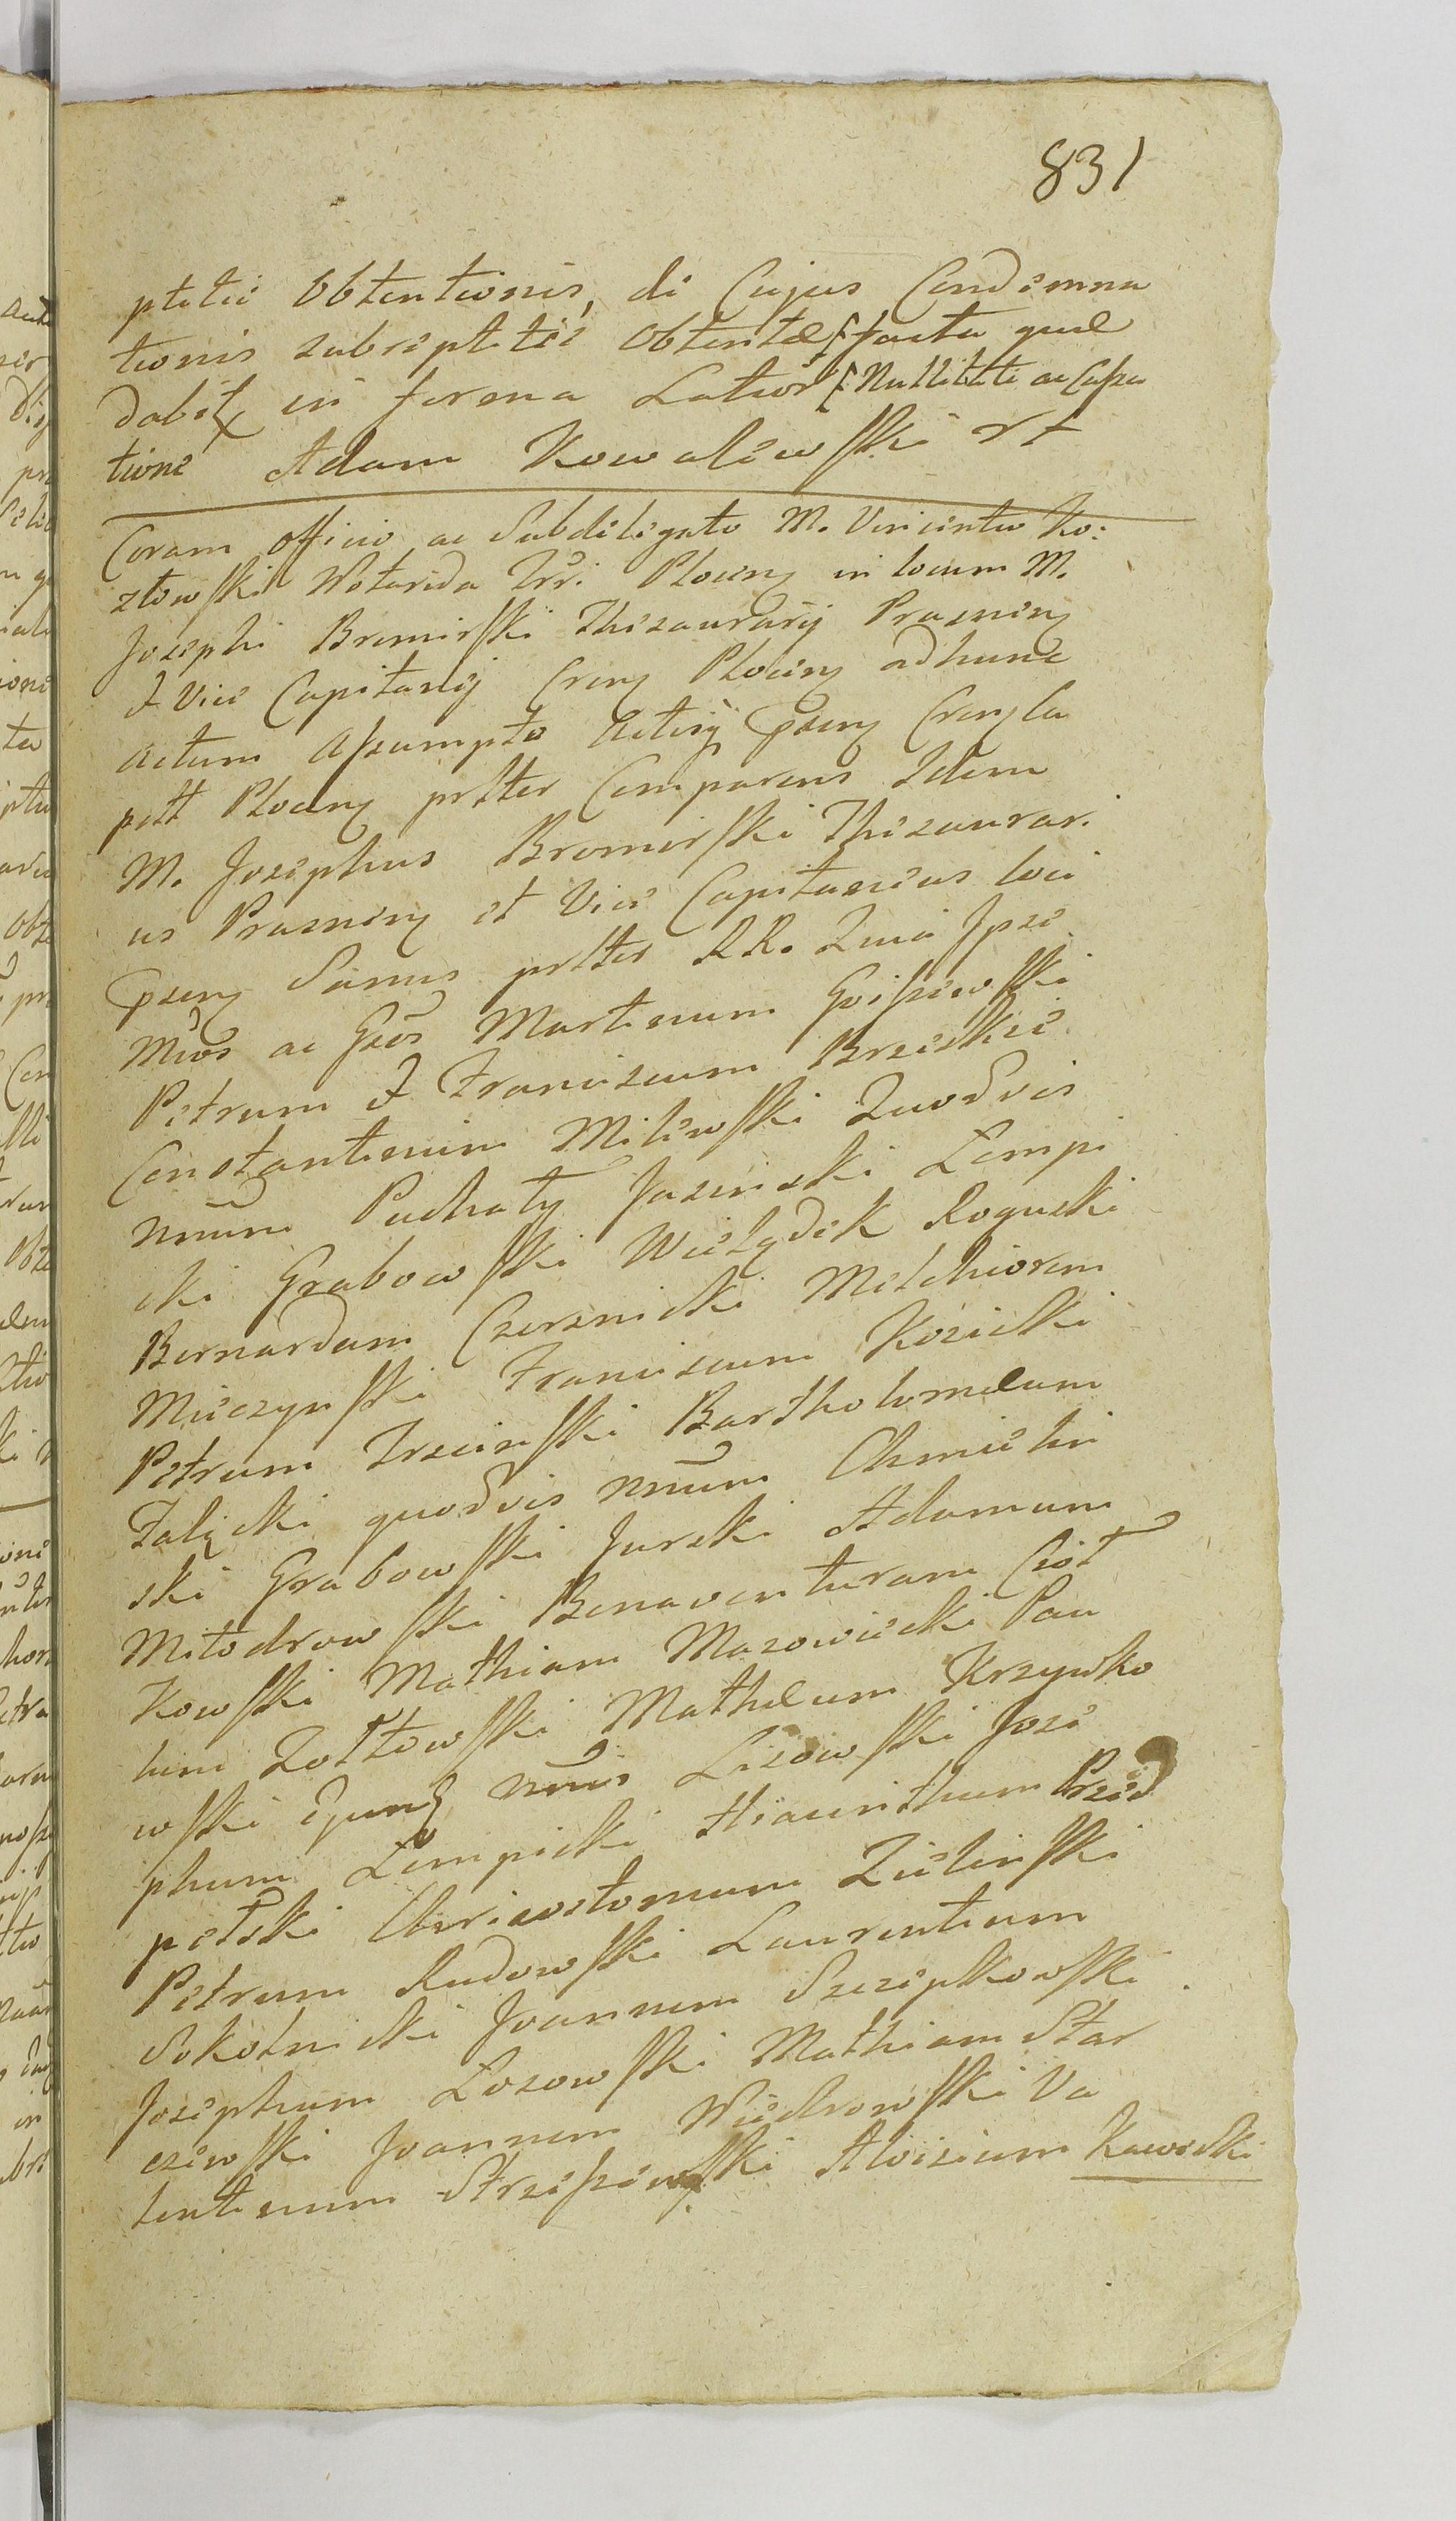 831
ptitie Obtentionis, de Cujus Condemna
tionis subreptitie Obtentæ facta quæ
dabit in forma Latior Nullitate ac Cassa
tione Adam Kowalewski rt
Coram officio ac Subdelegato M. Vincentio Ko:
złowski Notarida Trri Plocen in locum M.
Josephi Bromirski Thesaurarij Prasnen
& Vice Capitanij Cren Plocen adhunc
actum Assumpto Actisq psen Cren Ca
pett Plocen prltter Comparens Idem
M. Josephus Bromirski Thesaurari
us Prasnen et Vice Capitaneus loci
psen Sanus prltter RR. Quia Ipse
Mcos ac Gsos Martinum Goiszewski
Petrum & Franciscum Brzeskie
Constantinum Milewski Quodvis
nnum Puchaty Jasinski Lempi
cki Grabowski Wielądek Roguski
Bernardum Czersnicki Melchiorem
Mieczynski Franciscum Kosicki
Petrum Trzcinski Bartholomæum
Falęcki quodvis nnum Chmielin
ski Grabowski Jurski Adamum
Miłodrowski Bonaventuram Ciot
kowski Mathiam Mazowiecki Pau
lum Zołtowski Mathæum Krzywko
wski ejunq nnis Lisowski Jose
phum Lempicki Hiacinthum Przed
pełski Chrisostomum Zielinski
Petrum Rudowski Laurentium
Sokolnicki Joannem Szczepkowski
Josephum Losowski Mathiam Star
czewski Joannem Wichrowski Va
lentinum Strzeszewski Aloisium Kawecki